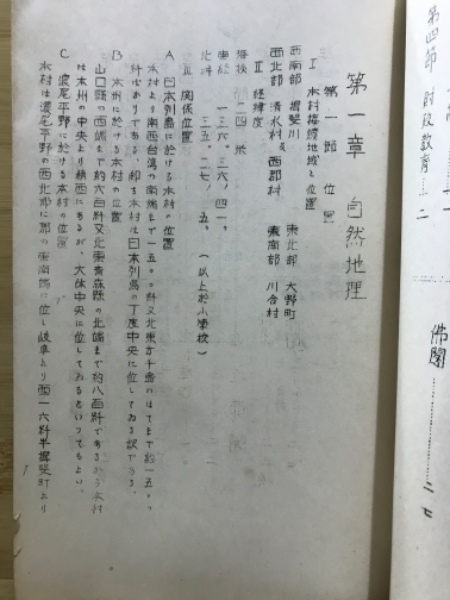 第一章 自然地理
第一節 位置
I 本村接續地域と位置
西南部 揖斐川 東北部 大野町
西北部 清水村及西郡村 東南部 川合村
II 経緯度
海抜 二四 米
東経 一三六。三六′四一。
北緯 三五。二七′五。 (以上於小學校)
III 関係位置
A 日本列島に於ける本村の位置
本村より南西台湾の南端まで一五〇〇粁又北東方千島のはてまで約一五〇〇
粁であり、即ち本村は日本列島の丁度中央に位してゐる訳である、
B 本州に於ける本村の位置
山口縣の西端まで約六百粁又北東青森縣の北端まで約八百粁であるから本村
は本州の中央より稍西にあるが、大体中央に位してゐるといつてもよい、
C 濃尾平野に於ける本村の位置
本村は濃尾平野の西北部に郡の東南端に位し岐阜より西一六粁半揖斐町より
第四節 財政教育 二
佛閣 二七